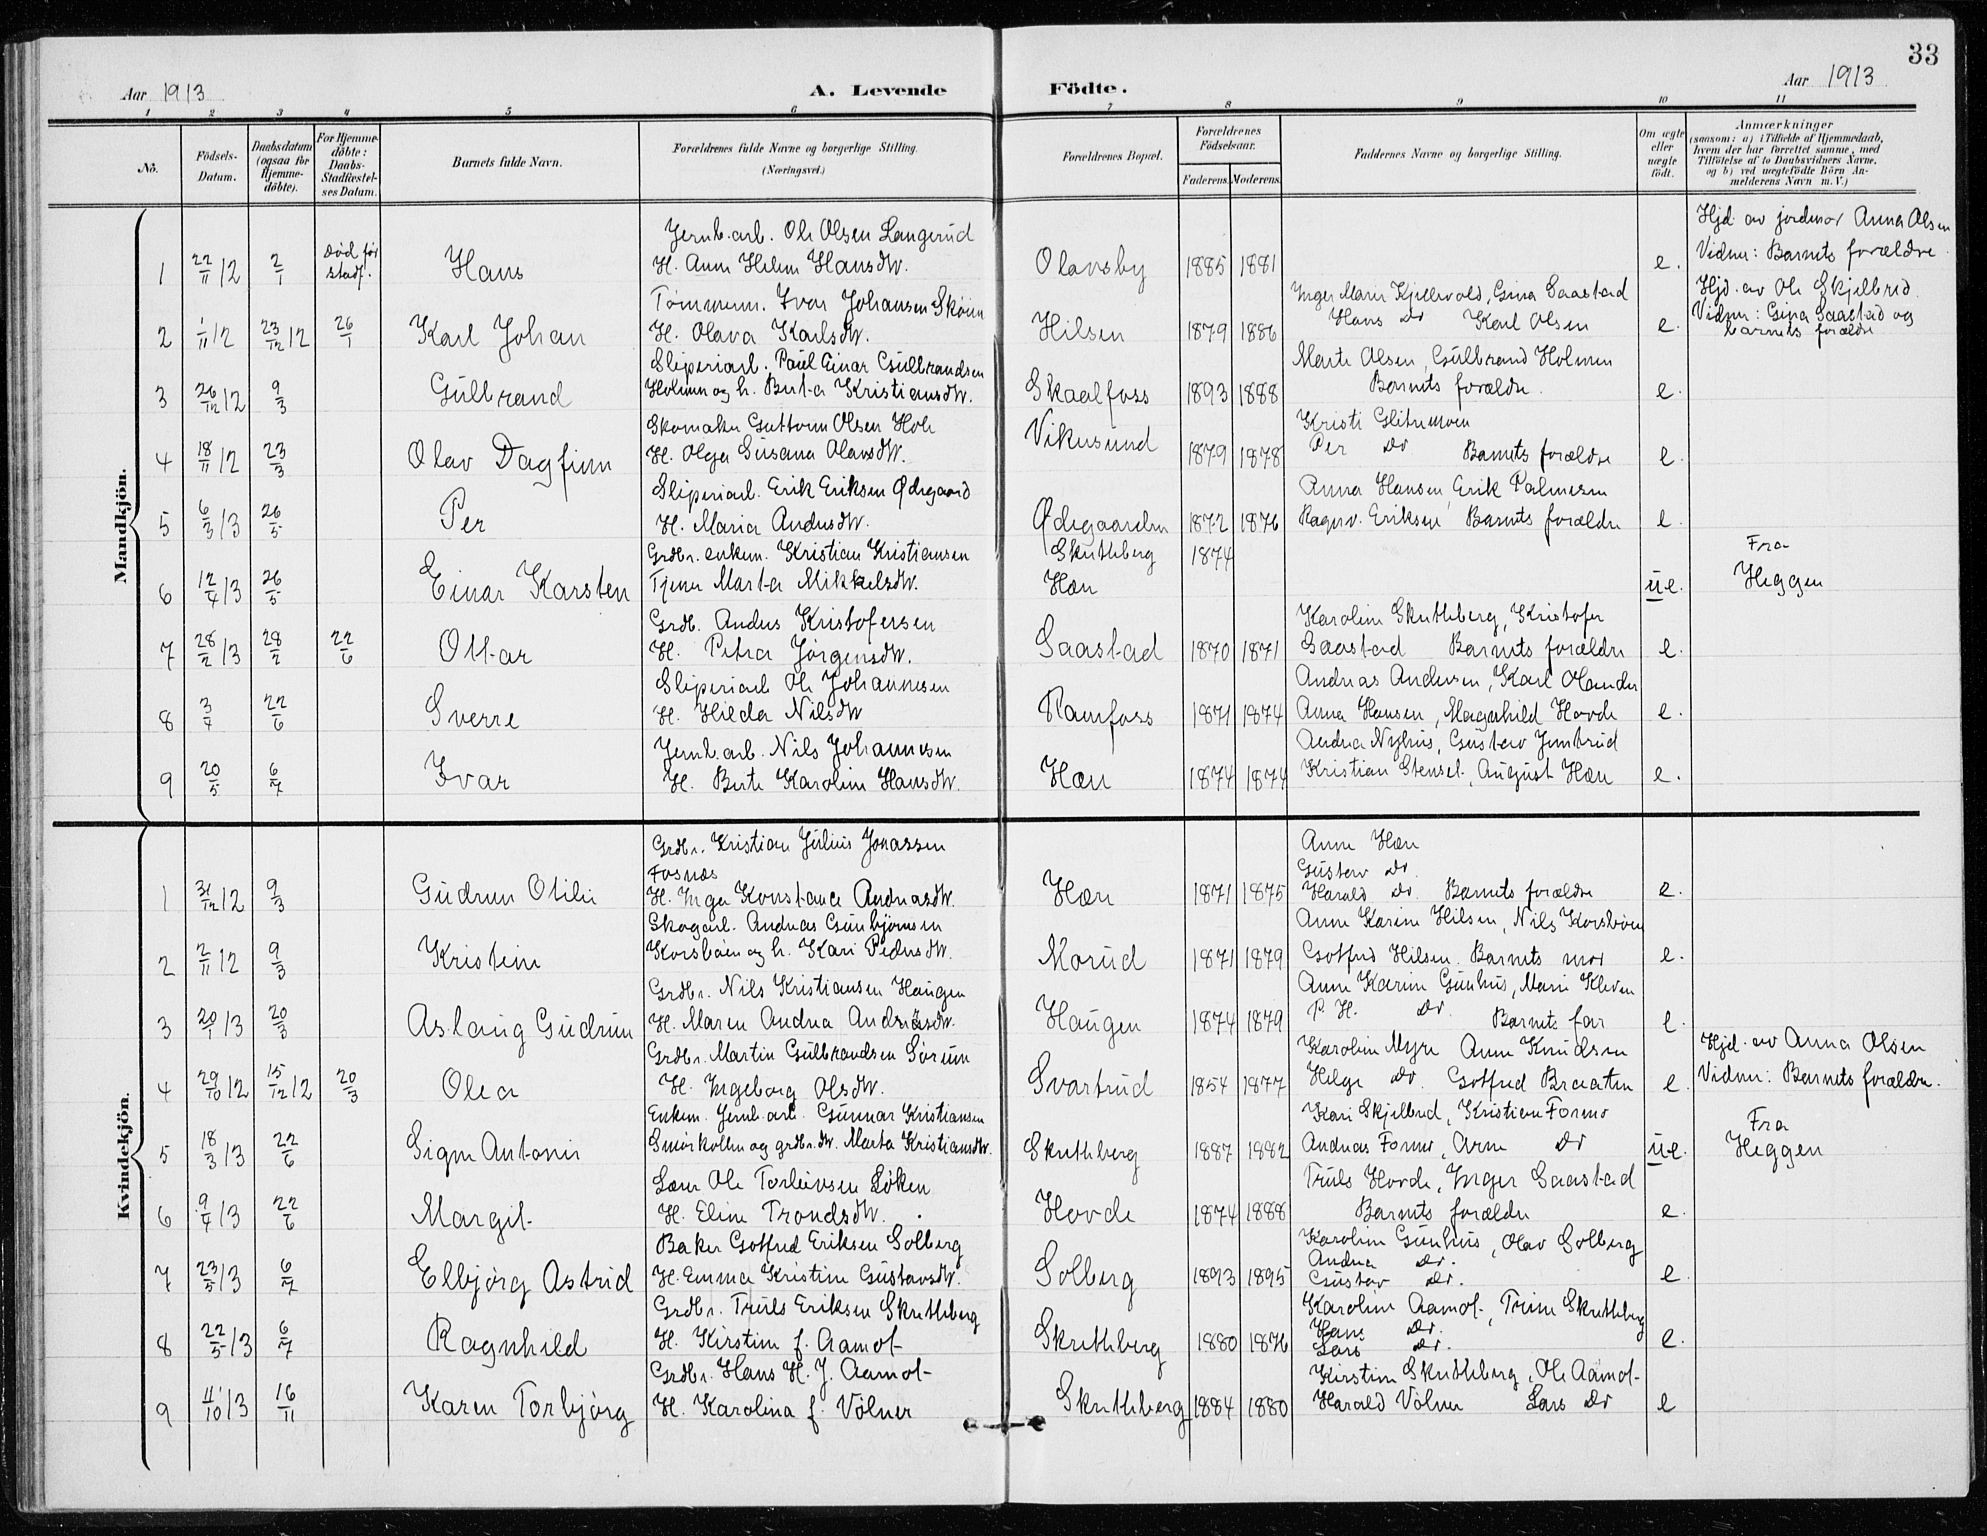 33
Aar 1913
A. Levende
Födte.
Aar 1913
1 2 3 4 5 6 7 8 9 10 11
No.
Födsels-Datum.
Daabsdatum (ogsaa for Hjemme-döbte).
For Hjemme-döbte: Daabs-Stadfæstel-ses Datum.
Barnets fulde Navn.
Forældrenes fulde Navne og borgerlige Stilling.
(Næringsvei.)
Forældrenes Bopæl.
Forældrenes Födselsaar.
Faderens. Moderens.
Faddernes Navne og borgerlige Stilling.
Om ægte eller uægte födt.
Anmærkninger
(saasom: a) i Tilfælde af Hjemmedaab, hvem der har forrettet samme, med Tilföielse af to Daabsvidners Navne, og b) ved uægtefödte Börn An-melderens Navn m. V.)
Mandkjön.
Jernb.arb. Ole Olsen Langerud
Hjd. av jordmor Anna Olsen
1 22/11 12 2/1 Död før stadf. Hans H. Anne Helene Hansdtr. Olavsby 1885 1881 e. Vidner: Barnets forældre.
Tømmerm. Ivar Johansen Skøien
Inger Marie Kjellevold, Gina Saastad
Hjd. av Ole Skjelbred.
2 1/11 12 23/12 12 26/1 Karl Johan H. Olava Karlsdtr. Hilsen 1879 1886 Hans Do Karl Olsen e. Vidner: Gina Saastad og
barnets forældre
Sliperiarb. Paul Einar Gulbrandsen
Marte Olsen, Gulbrand Holmen
3 26/12 12 9/3 Gulbrand Holmen og h. Berta Kristiansdtr. Skaalfoss 1893 1888 Barnets forældre. e.
Skomaker Guttorm Olsen Hole
Kristi Glitremoen
4 18/11 12 23/3 Olav Dagfinn H. Olga Susana Olavsdtr. Vikersund 1879 1878 Per Do Barnets forældre e.
Sliperiarb. Erik Eriksen Ødegaard
Anna Hansen, Erik Palmesen
5 6/3 13 26/5 Per H. Maria Andersdtr. Ødegaarden 1872 1876 Ragnv. Eriksen Barnets forældre e.
Grdbr. enkem. Kristian Kristiansen Skuthberg 1874
Fra
6 12/4 13 26/5 Einar Karsten Tjener Marta Mikkelsdtr. Hæn u.e. Heggen
Grdb. Anders Kristofersen
Karoline Skuthberg, Kristofer
7 28/2 13 28/2 22/6 Ottar H. Petra Jørgensdtr. Saastad 1870 1871 Saastad Barnets forældre e.
Sliperiarb Ole Johannesen
Andreas Andersen, Karl Olander
8 3/4 22/6 Sverre H. Hilda Nilsdtr Ramfoss 1871 1874 Anna Hansen, Magnhild Hovde e.
Jernb.arb. Nils Johannesen
Andrea Nyhus, Gustav Jontrud
9 20/5 6/7 Ivar H. Berte Karoline Hansdtr. Hæn 1874 1874 Kristian Stenset, August Hæn e.
Kvindekjön.
Grdbr. Kristian Julius Jonassen
Anne Hæn
Fosnæs
Gustav Do.
1 31/12 12 9/3 Gudrun Otilie H. Inga Konstanse Andreasdtr. Hæn 1871 1875 Harald Do. Barnets forældre e.
Skogarb. Andreas Gunbjørnsen
Anne Karine Hilsen, Nils Korsbøen
2 2/11 12 9/3 Kristine Korsbøen og h. Kari Pedersdtr. Morud 1871 1879 Gotfred Hilsen. Barnets mor e.
Grdbr. Nils Kristiansen Haugen
Anne Karine Gunhus, Marie Kleven
3 20/1 13 20/3 Aslaug Gudrun H. Maren Andrea Andreasdtr. Haugen 1874 1879 P. H. Do. Barnets far e.
Grdbr. Martin Gulbrandsen Sørum
Karoline Myre Anne Knudsen
Hjd. av Anna Olsen
4 29/10 12 15/12 12 20/3 Olea H. Ingeborg Olsdtr. Svartrud 1854 1877 Helge Do. Gotfred Braaten e. Vidner: Barnets forældre.
Enkem. Jernb.arb. Gunnar Kristiansen
Kari Skjelbred, Kristian Formo
Fra
5 18/3 13 22/6 Signe Antonie Smørkollen og grdbr.dtr. Marta Kristiansdtr. Skuthberg 1887 1882 Andreas Formo, Arne Do u.e. Heggen
Lærer Ole Torleivsen Løken
Truls Hovde, Inger Saastad
6 9/4 13 22/6 Margit H. Eline Trondsdtr. Hovde 1874 1888 Barnets forældre e.
Baker Gotfred Eriksen Solberg
Karoline Gunhus, Olav Solberg
Andrea Do.
7 23/5 13 6/7 Elbjørg Astrid H. Emma Kristine Gustavsdtr. Solberg 1893 1895 Gustav Do. e
Grdbr. Truls Eriksen Skuthberg
Karoline Aamot, Trine Skuthberg
Hans Do.
8 22/5 13 6/7 Ragnhild H. Kirstine f. Aamot Skuthberg 1880 1876 Lars Do. e.
Grdbr. Hans H. J. Aamot
Kirstine Skuthberg, Ole Aamot
9 11/10 13 16/11 Karen Torbjørg H. Karolina f. Volner Skuthberg 1884 1880 Harald Volner Lars Do e